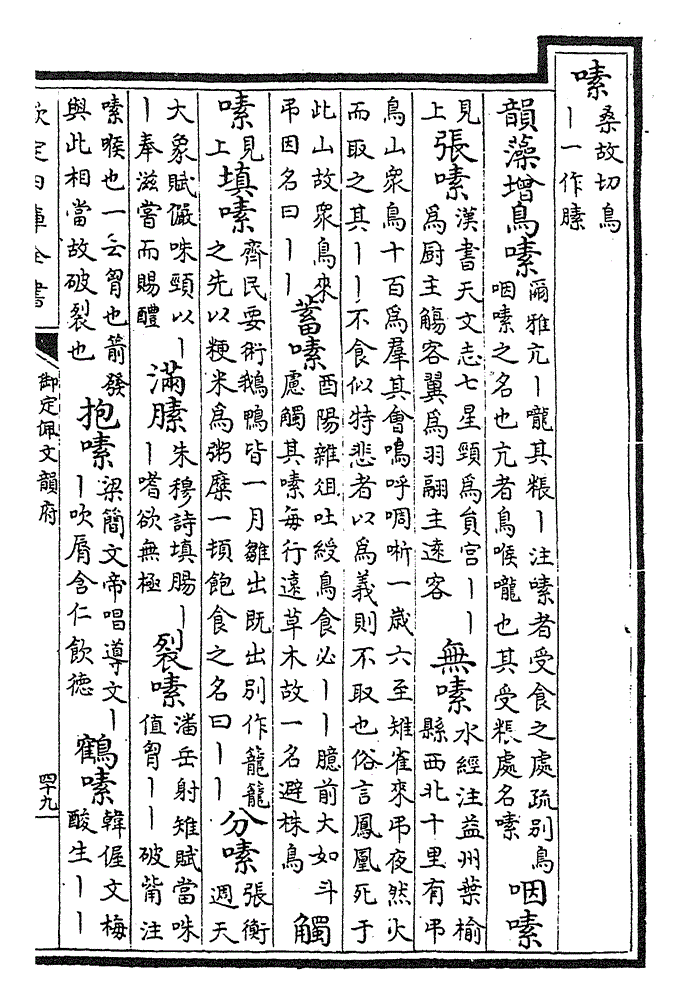 嗉 桑故切鳥丨一作膆
韻藻增鳥嗉 爾雅亢丨嚨其粻丨注嗉者受食之處疏别鳥咽嗉之名也亢者鳥喉嚨也其受粻處名嗉 咽嗉
見上 張嗉 漢書天文志七星頸爲員宫丨丨爲厨主觴客翼爲羽翮主逺客 無嗉 水經注益州葉榆縣西北十里有弔
鳥山衆鳥十百爲羣其會鳴呼啁哳一歲六至雉雀來弔夜然火而取之其丨丨不食似特悲者以爲義則不取也俗言鳳凰死于
此山故衆鳥來弔因名曰丨丨 蓄嗉 酉陽雜俎吐綬鳥食必丨丨臆前大如斗慮觸其嗉每行遠草木故一名避株鳥 觸
嗉 見上 填嗉 齊民要術鵝鴨皆一月雛出既出别作籠籠之先以粳米爲粥糜一頓飽食之名曰丨丨 分嗉 張衡週天
大象賦儷咮頸以丨丨奉滋嘗而賜醴 滿膆 朱穆詩填腸丨丨嗜欲無極 裂嗉 潘岳射雉賦當咮值胷丨丨破觜注
嗉喉也一云胷也箭發與此相當故破裂也 抱嗉 梁簡文帝唱導文丨丨吹脣含仁飲德 鶴嗉 韓偓文梅酸生丨丨
欽定四庫全書
御定佩文韻府
四十九